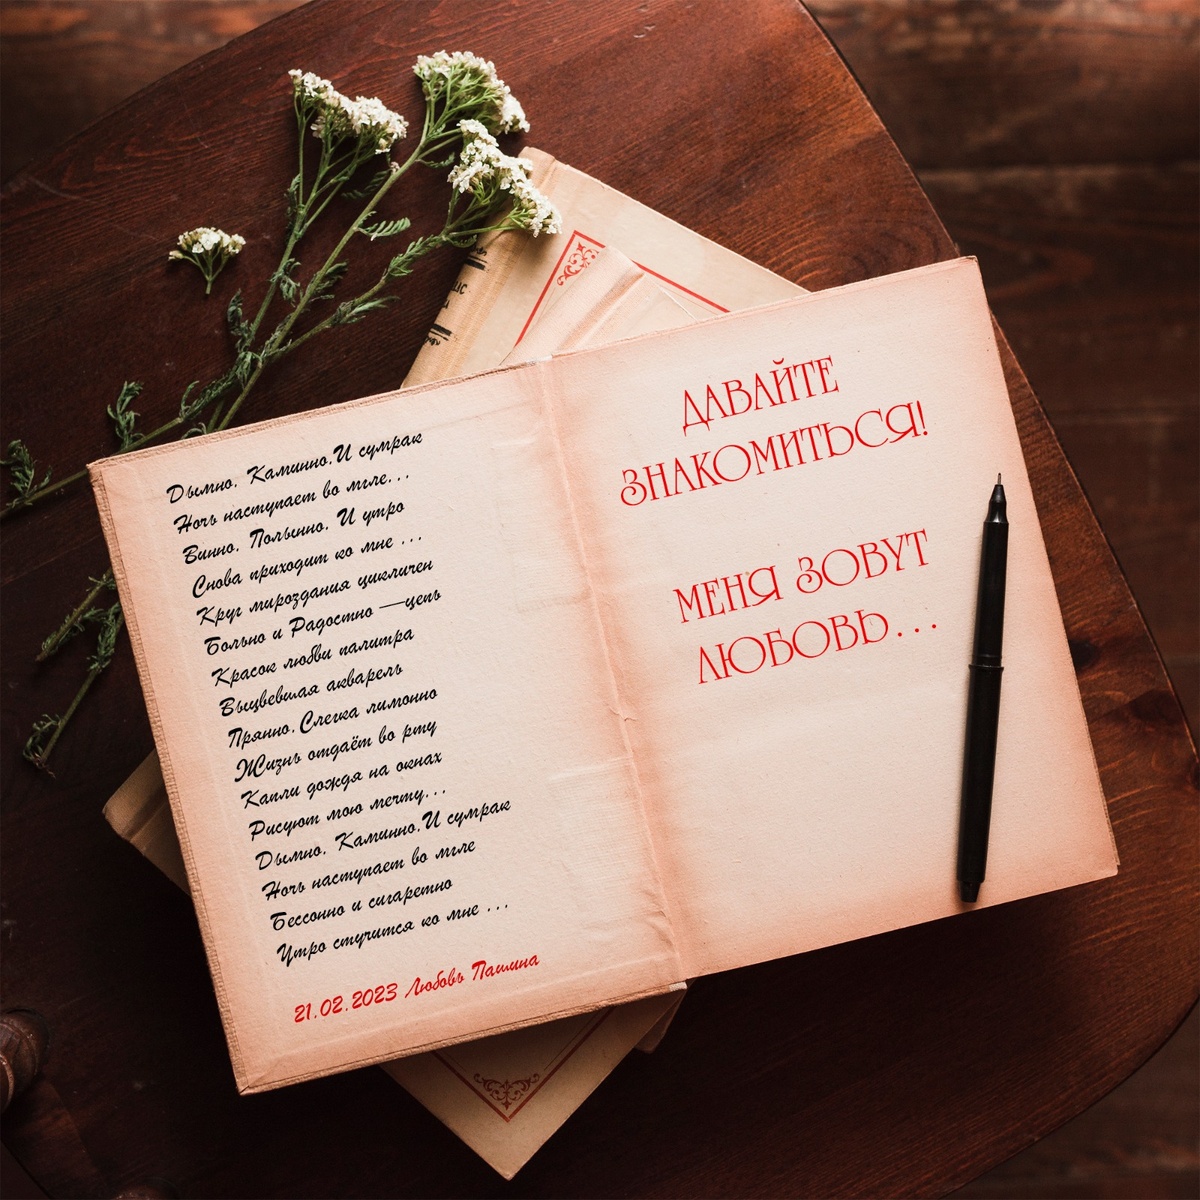 Дымно. Каминно.И сумрак
Ночь наступает во мгле...
Винно. Полынно. И утро
Снова приходит ко мне ...
Круг мироздания цикличен
Больно и Радостно —цепь
Красок любви палитра
Выцвевшая акварель
Прянно.Слегка лимонно
Жизнь отдаёт во рту
Капли дождя на окнах
Рисуют мою мечту...
Дымно. Каминно.И сумрак
Ночь наступает во мгле
Бессонно и сигаретно
Утро стучится ко мне ...
21.02.2023 Любовь Пашина
ДАВАЙТЕ
ЗНАКОМИТЬСЯ!
МЕНЯ ЗОВУТ
ЛЮБОВЬ...